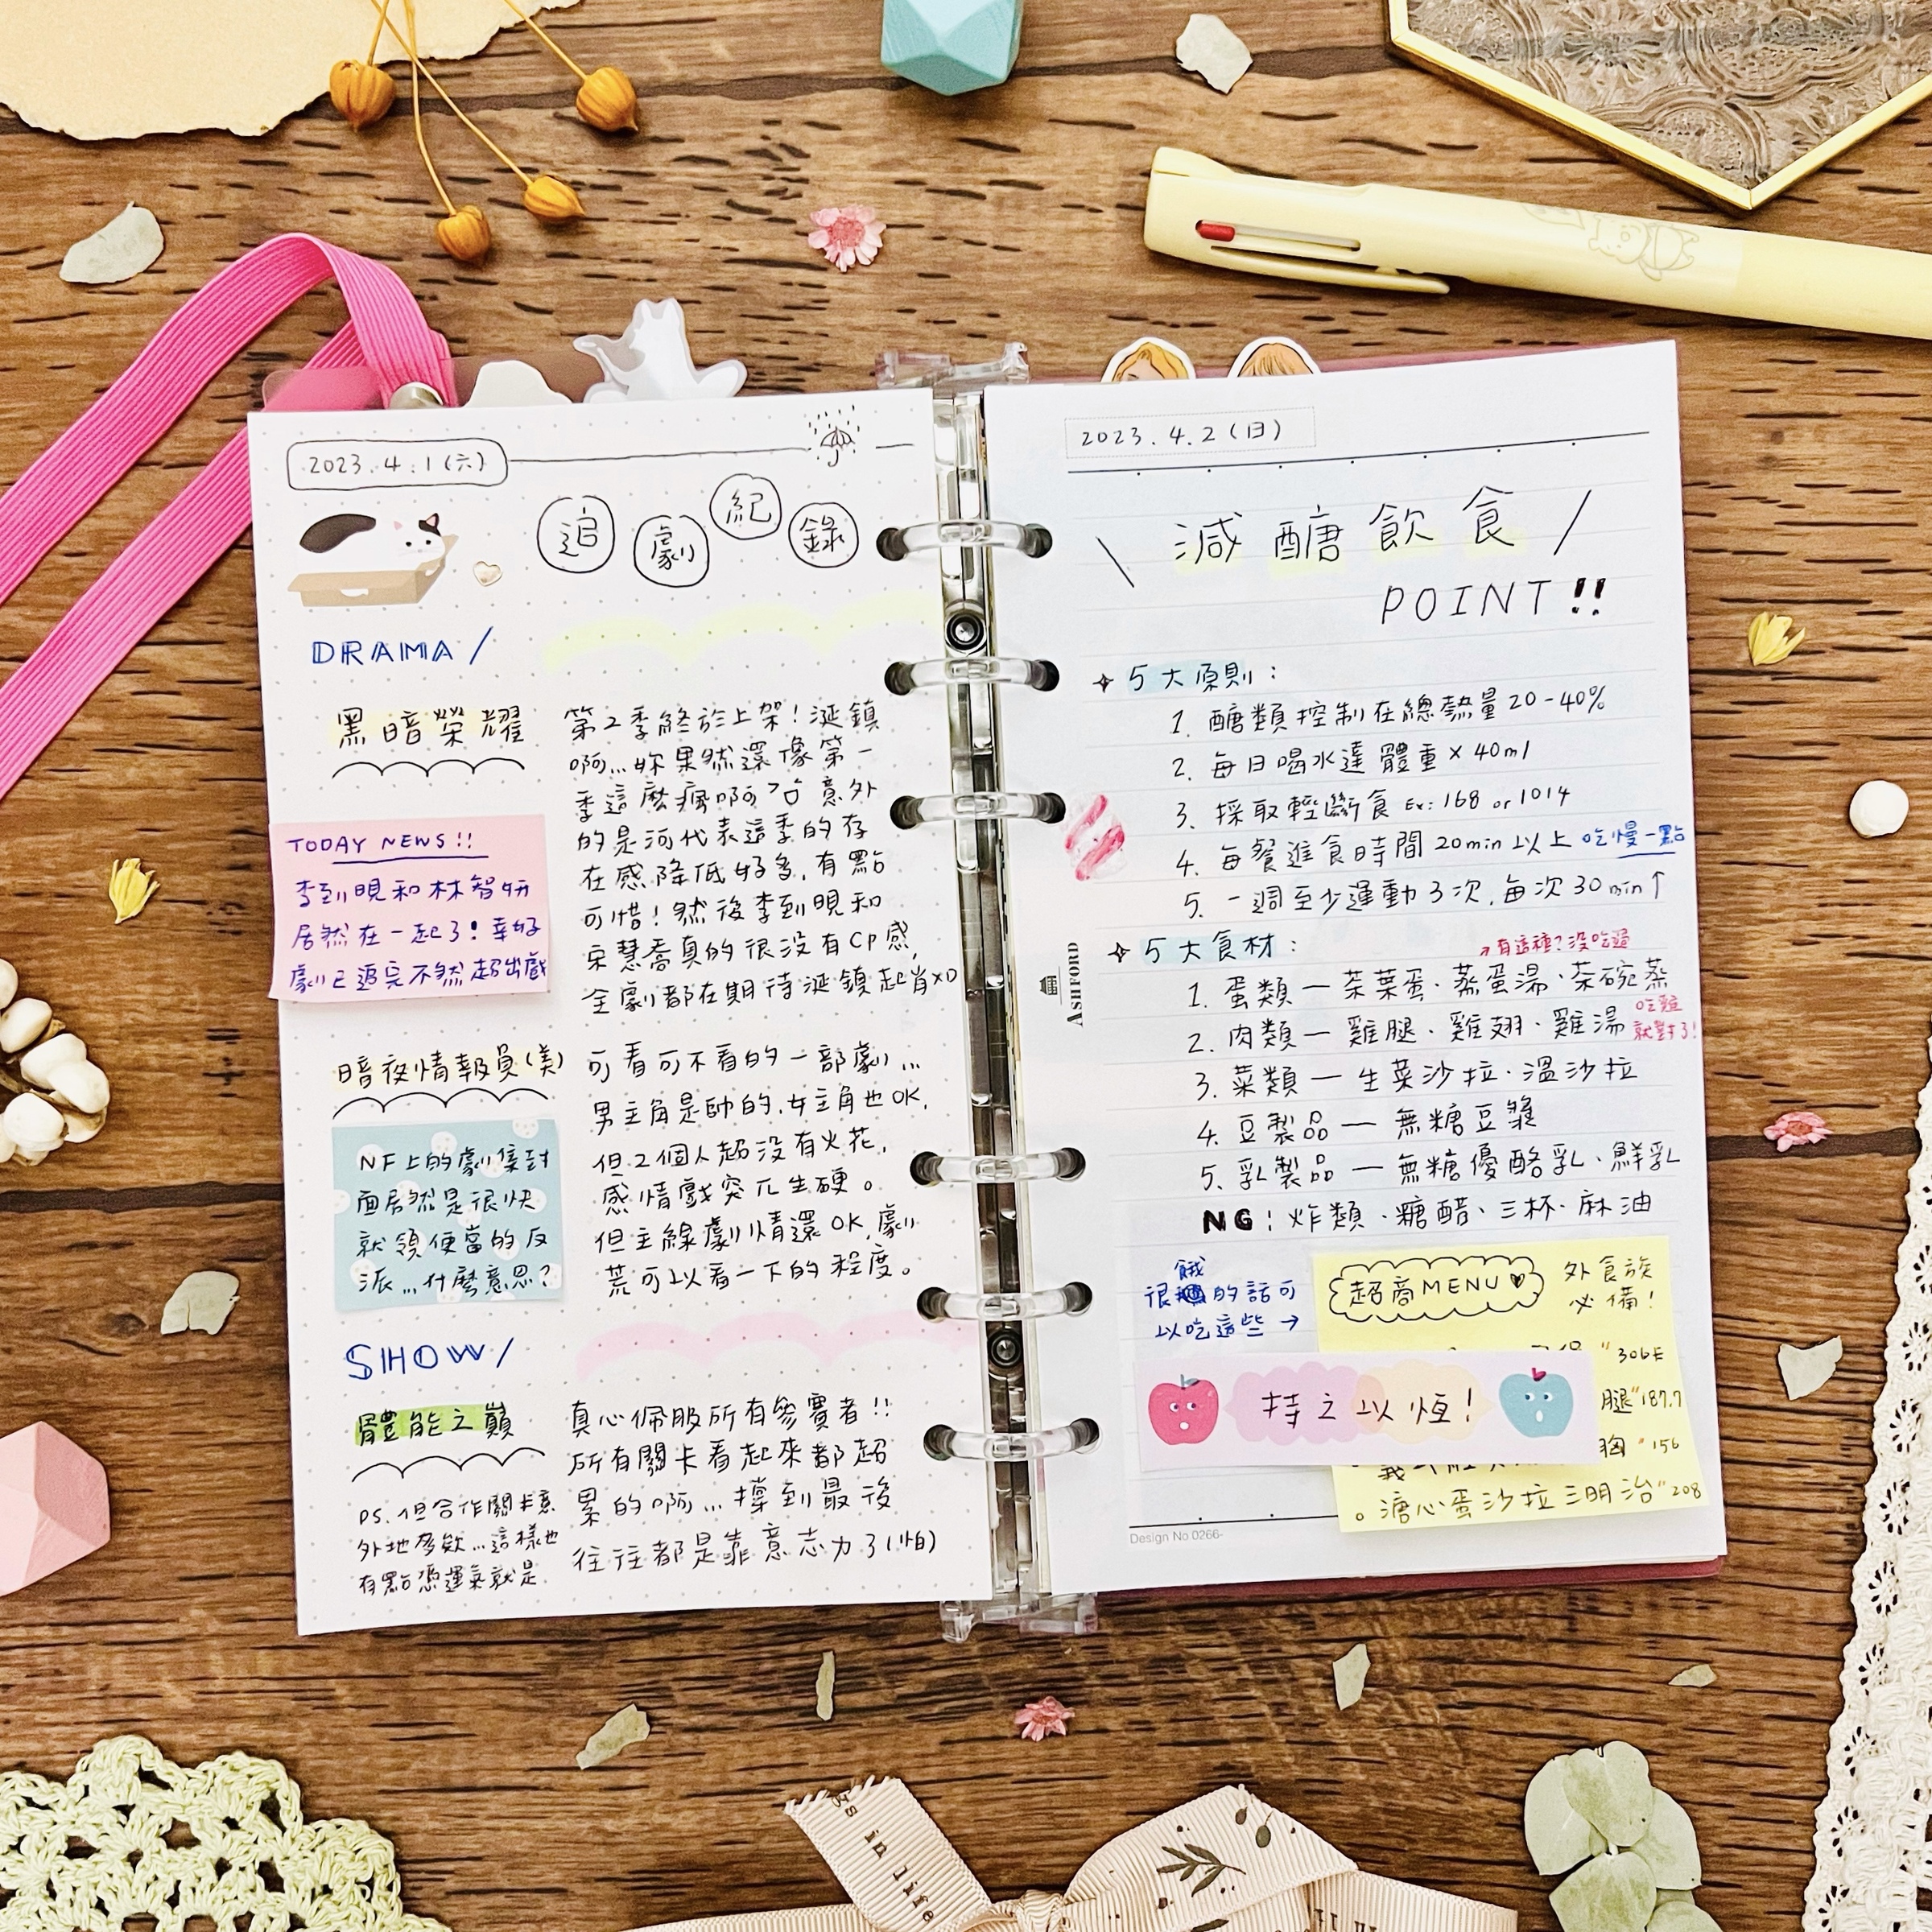 2023.4.1(六)
追劇紀錄
DRAMA/
黑暗榮耀
第2季終於上架！涎鎮
啊...妳果然還像第一
季這麼瘋啊 意外
的是河代表這季的存
在感降低好多,有點
可惜！然後李到晛和
宋慧喬真的很沒有CP感,
全劇都在期待涎鎮起肖XD
TODAY NEWS!!
李到晛和林智妍
居然在一起了！幸好
劇已追完不然超出戲
暗夜情報員(美)
可看可不看的一部劇...
男主角是帥的,女主角也OK,
但2個人超沒有火花,
感情戲突兀生硬。
但主線劇情還OK,劇
荒可以看一下的程度。
NF上的劇集封
面居然是很快
就領便當的反
派...什麼意思?
SHOW/
體能之巔
真心佩服所有參賽者!!
所有關卡看起來都超
累的啊...撐到最後
往往都是靠意志力了(怕)
PS.但合作關卡意
外地多欸...這樣也
有點憑運氣就是
2023.4.2(日)
\ 減醣飲食 /
POINT!!
5大原則：
1. 醣類控制在總熱量20-40%
2. 每日喝水達體重×40ml
3. 採取輕斷食 Ex:168 or 1014
4. 每餐進食時間20min以上 吃慢一點
5. 一週至少運動3次,每次30min↑
5大食材：
↗有這種?沒吃過
1. 蛋類一茶葉蛋·蒸蛋湯·茶碗蒸
2. 肉類一雞腿·雞翅·雞湯
吃雞
就對了!
3. 菜類一生菜沙拉·溫沙拉
4. 豆製品一無糖豆漿
5. 乳製品一無糖優酪乳·鮮乳
NG：炸類·糖醋·三杯·麻油
很餓的話可
以吃這些→
超商MENU♥
外食族
必備!
306E
腿"187.7
胸"156
持之以恆!
。溏心蛋沙拉三明治"208
ASHFORD
Design No.0266-
in life